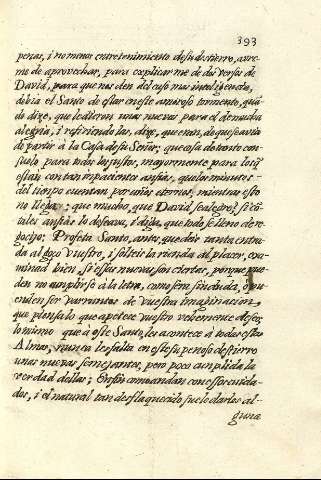 393
penas, i no menos entretenimiento de su destierro, avre
me de aprovechar, para explicarme de dos versos de
David, para que nos den del caso mas inteligencia,
debia el Santo de estar en este amoroso tormento, quã
do dixo, que le dieron unas nuevas para el de mucha
alegria, i refiriendolas, dixo, que eran, de que se avia
de partir à la Casa de su Señor, que es a de tanto con
suelo para todos los justos, mayormente para los q
estàn con tan inpacientes ansias, que los minutos
del tiempo cuentan por años eternos, mientras esto
no llega; que mucho, que David se alegre, si cõ
tales ansias lo deseava, i diga, que todo se lleno de re
gocijo; Profeta Santo, antes que deis tanta entra
da al gozo vuestro, i solteis la rienda al placer, exa
minad bien, si essas nuevas son ciertas, porque pue
den no cumplirse à la letra, como sera sin duda, ò pu
eden ser barruntos de vuestra imaginacion,
que piensa lo que apetece vuestro vehemente deseo,
lo mismo que à este Santo les acontece à todas estas
Almas, nunca les falta en este su penoso destierro
unas nuevas semejantes, pero poco cumplida la
verdad dellas; Enfin como andan con esse cuida-
do, i el natural tan desflaquecido suele darles al-
guna